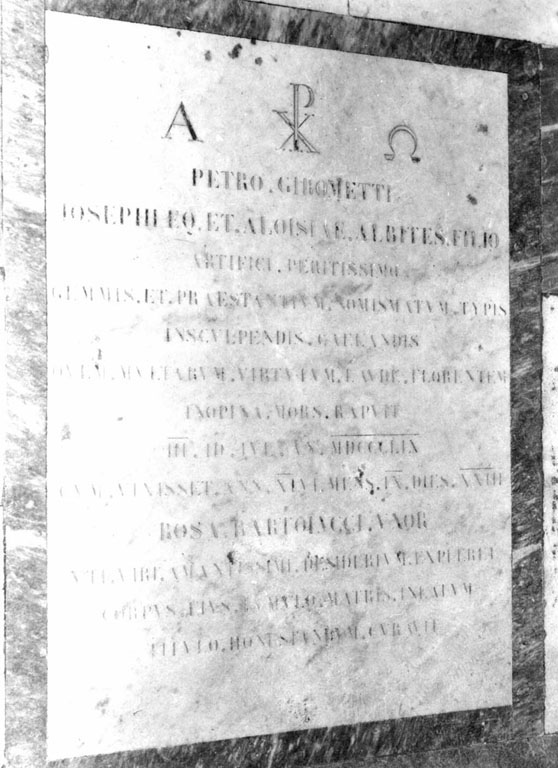 Α ☧ Ω
PETRO . GIROMETTI
IOSEPHI EQ . ET . ALOISIAE . ALBITES . FILIO
ARTIFICI . PERITISSIMO
GEMMIS . ET . PRAESTANTIVM . NOMISMATVM . TYPIS
INSCVLPENDIS . CAELANDIS
QVEM . MVLTARVM . VIRTVTVM . LAVDE . FLORENTEM
INOPINA . MORS . RAPVIT
ID . IVL . AN . MDCCCLIX
CVM . VIXISSET . ANN . XLVI . MENS . IX . DIES . XXIII
ROSA . BARTOLVCCI . VXOR
VTI . VIRI . AMANTISSIMI . DESIDERIVM . EXPLERET
CORPVS . EIVS . TVMVLO . MATRIS . INLATVM
TITVLO . HONESTANDVM . CVRAVIT